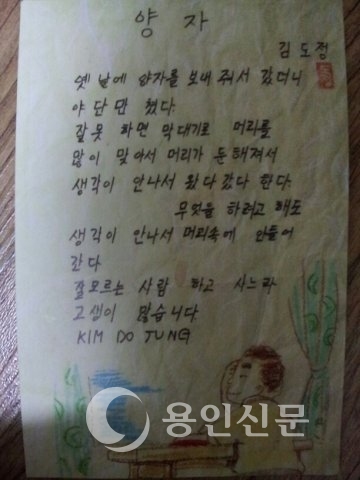 양 자
김 도 정
옛 날에 양자를 보내 줘서 갔더니
야 단 만 쳤다.
잘못 하면 막대기로 머리를
많이 맞아서 머리가 둔해져서
생각이 안나서 왔다 갔다 한다.
무엇을 하려고 해도
생각이 안나서 머리속에 안들어
간다
잘모르는 사람 하고 사느라
고생이 많습니다.
KIM DO JUNG
용인신문